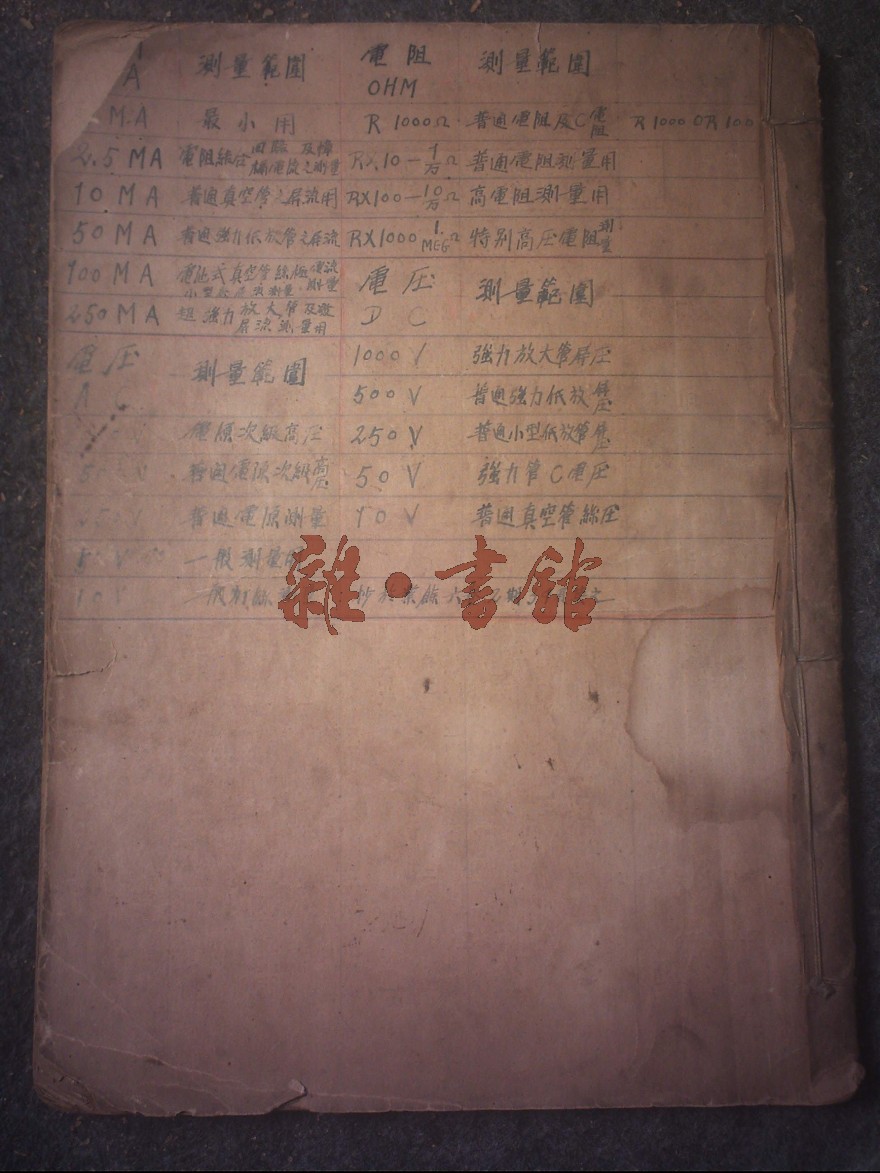 A 測量範圍 電阻 OHM 測量範圍
M.A 最小用 R 1000Ω 普通電阻及C電阻 R 1000 OR 100
2.5 MA 電阻結合回路及 電流之測量 RX10— 1/万 Ω 普通電阻測量用
10 MA 普通真空管之屏流用 RX100— 10/万 Ω 高電阻測量用
50 MA 普通強力低放管之屏流 RX1000 1. MEG Ω 特別高压電阻測量
100 MA 電池式真空管絲極電流 小型 屏流測量 測量
250 MA 超強力放大管及 屏流測量用
電压 DC 測量範圍
1000 V 強力放大管屏压
500 V 普通強力低放屏压
250 V 普通小型低放管屏压
50 V 強力管C電压
10 V 普通真空管絲压
電压 測量範圍
電源次級高压
普通電源次級高压
250 普通電源測量
5 V 一般測量
10 V 一般
雜·書館